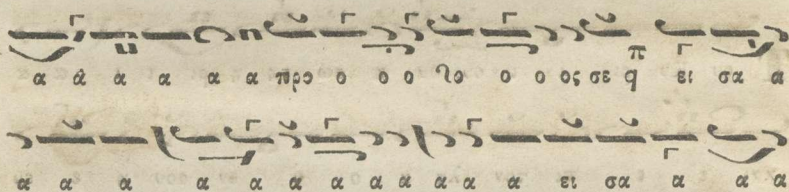 α α α α α α προ ο ο ο το ο ο ος σε q ει σα α
α α α α α α α α α α α ει σα α α α